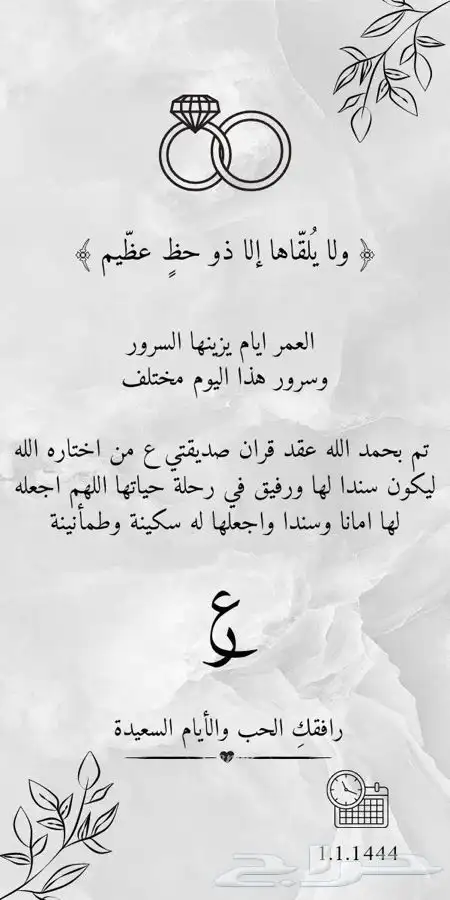 ﴿ ولا يُلقّاها إلا ذو حظٍ عظّيم ﴾
العمر ايام يزينها السرور
وسرور هذا اليوم مختلف
تم بحمد الله عقد قران صديقتي ع من اختاره الله
ليكون سندا لها ورفيق في رحلة حياتها اللهم اجعله
لها امانا وسندا واجعلها له سكينة وطمأنينة
ع
ر
رافقكِ الحب والأيام السعيدة
1.1.1444
حراج